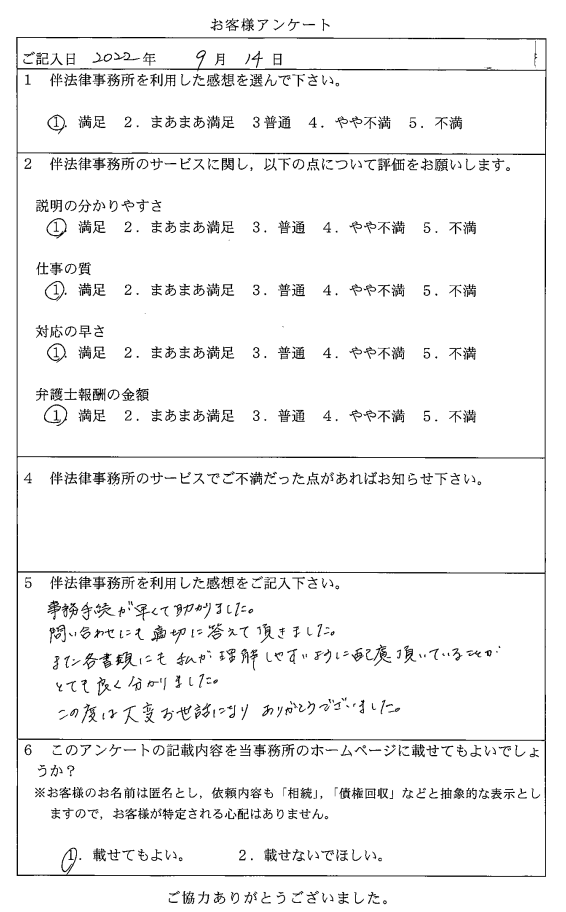 お客様アンケート
ご記入日 2022年 9月 14日
1 伴法律事務所を利用した感想を選んで下さい。
1. 満足 2. まあまあ満足 3普通 4. やや不満 5. 不満
2 伴法律事務所のサービスに関し，以下の点について評価をお願いします。
説明の分かりやすさ
1. 満足 2. まあまあ満足 3. 普通 4. やや不満 5. 不満
仕事の質
1. 満足 2. まあまあ満足 3. 普通 4. やや不満 5. 不満
対応の早さ
1. 満足 2. まあまあ満足 3. 普通 4. やや不満 5. 不満
弁護士報酬の金額
1. 満足 2. まあまあ満足 3. 普通 4. やや不満 5. 不満
4 伴法律事務所のサービスでご不満だった点があればお知らせ下さい。
5 伴法律事務所を利用した感想をご記入下さい。
事務手続が早くて助かりました。
問い合わせにも適切に答えて頂きました。
また各書類にも私が理解しやすいように配慮頂いていることが
とても良く分かりました。
この度は大変お世話になりありがとうございました。
6 このアンケートの記載内容を当事務所のホームページに載せてもよいでしょ
うか？
※お客様のお名前は匿名とし，依頼内容も「相続」，「債権回収」などと抽象的な表示とし
ますので，お客様が特定される心配はありません。
1. 載せてもよい。 2. 載せないでほしい。
ご協力ありがとうございました。